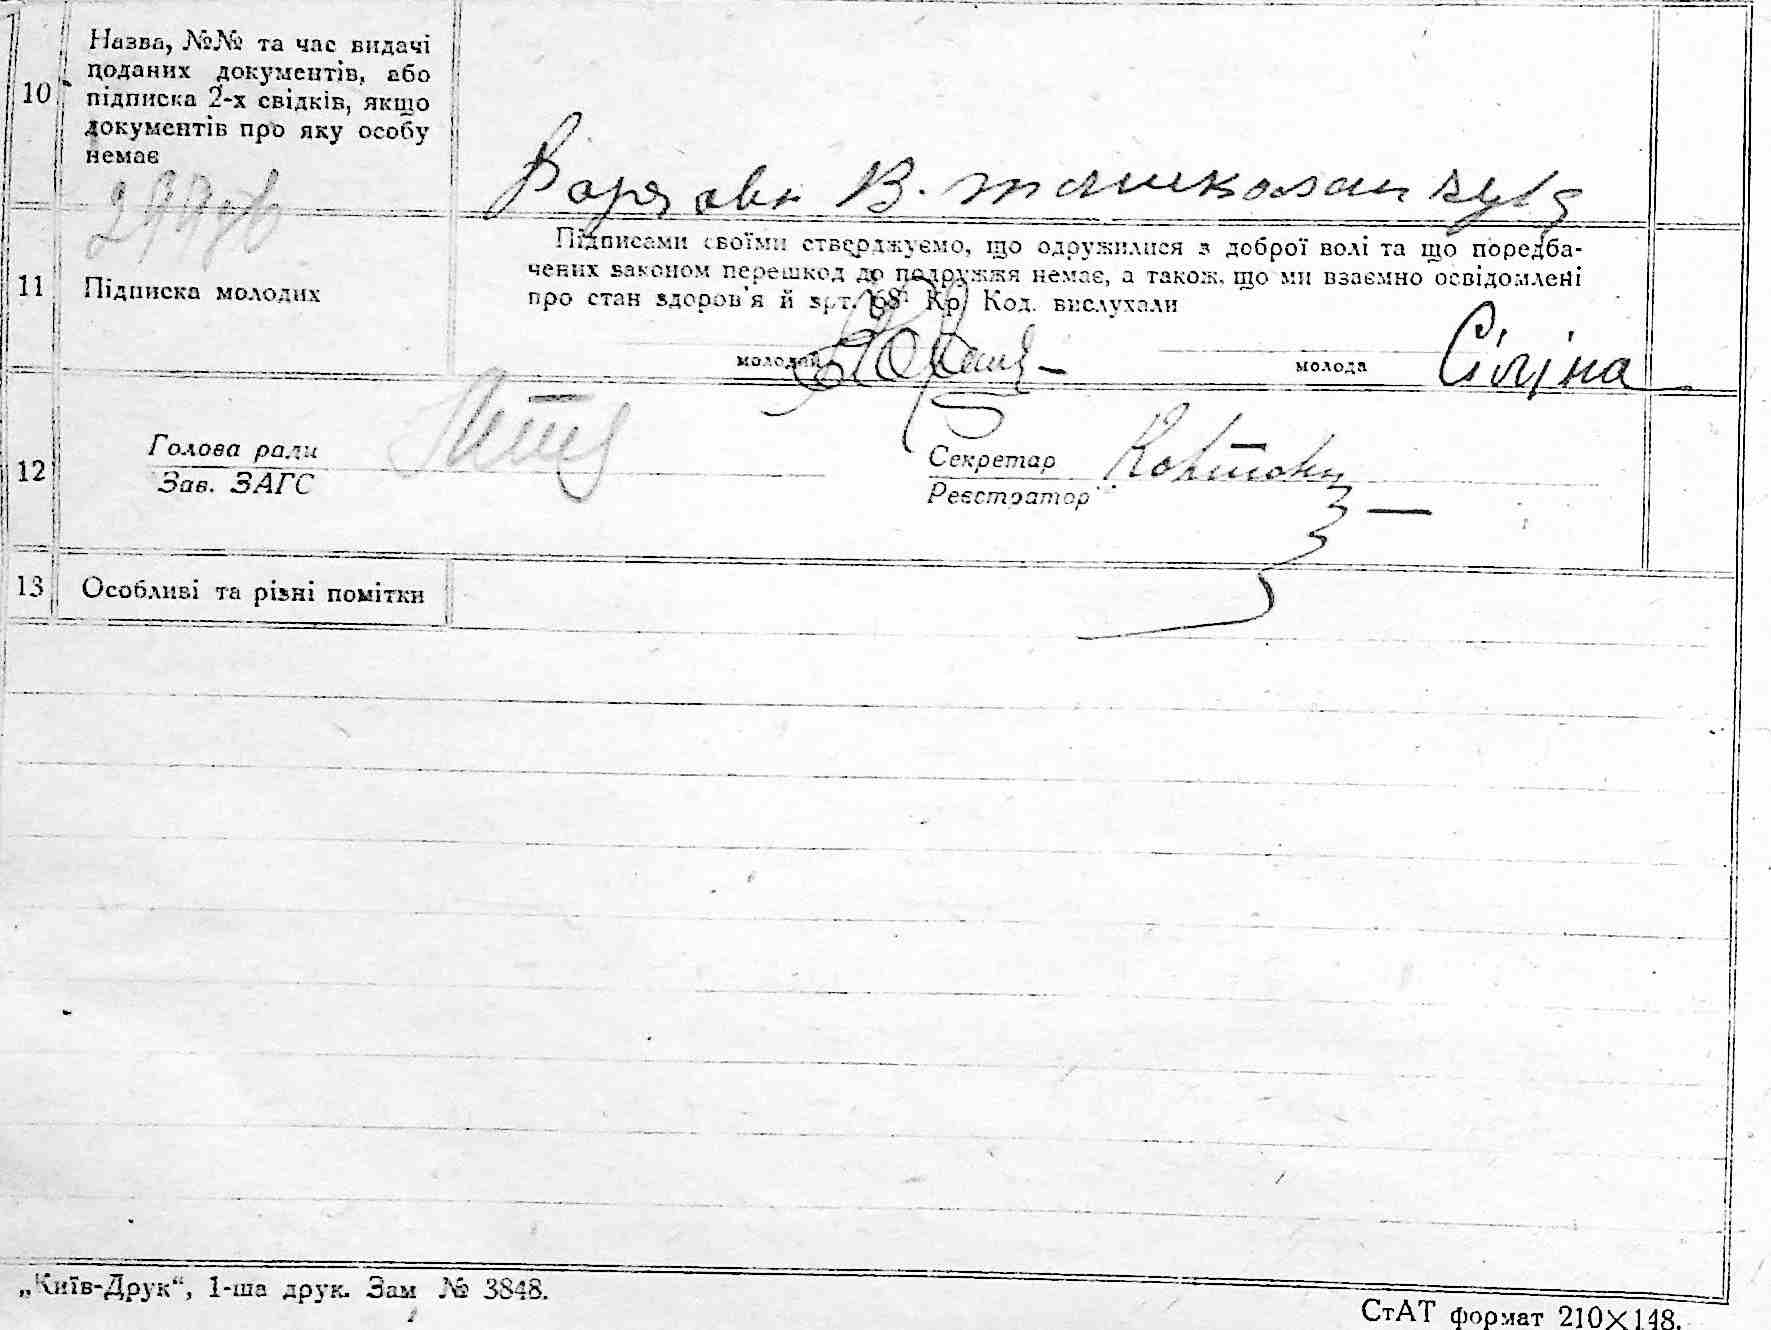 10
Назва, №№ та час видачі
поданих документів, або
підписка 2-х свідків, якщо
документів про яку особу
немає
В.
11
Підписка молодих
Підписами своїми стверджуємо, що одружилися з доброї волі та що поредба-
чених законом перешкод до подружжя немає, а також, що ми взаємно освідомлені
про стан здоров'я й арт. 68¹ Кр. Код. вислухали
молодий
молода Сіліна
12
Голова ради
Зав. ЗАГС
Секретар
Реєстратор
13
Особливі та різні помітки
„Київ-Друк“, 1-ша друк. Зам № 3848.
СтАТ формат 210×148.